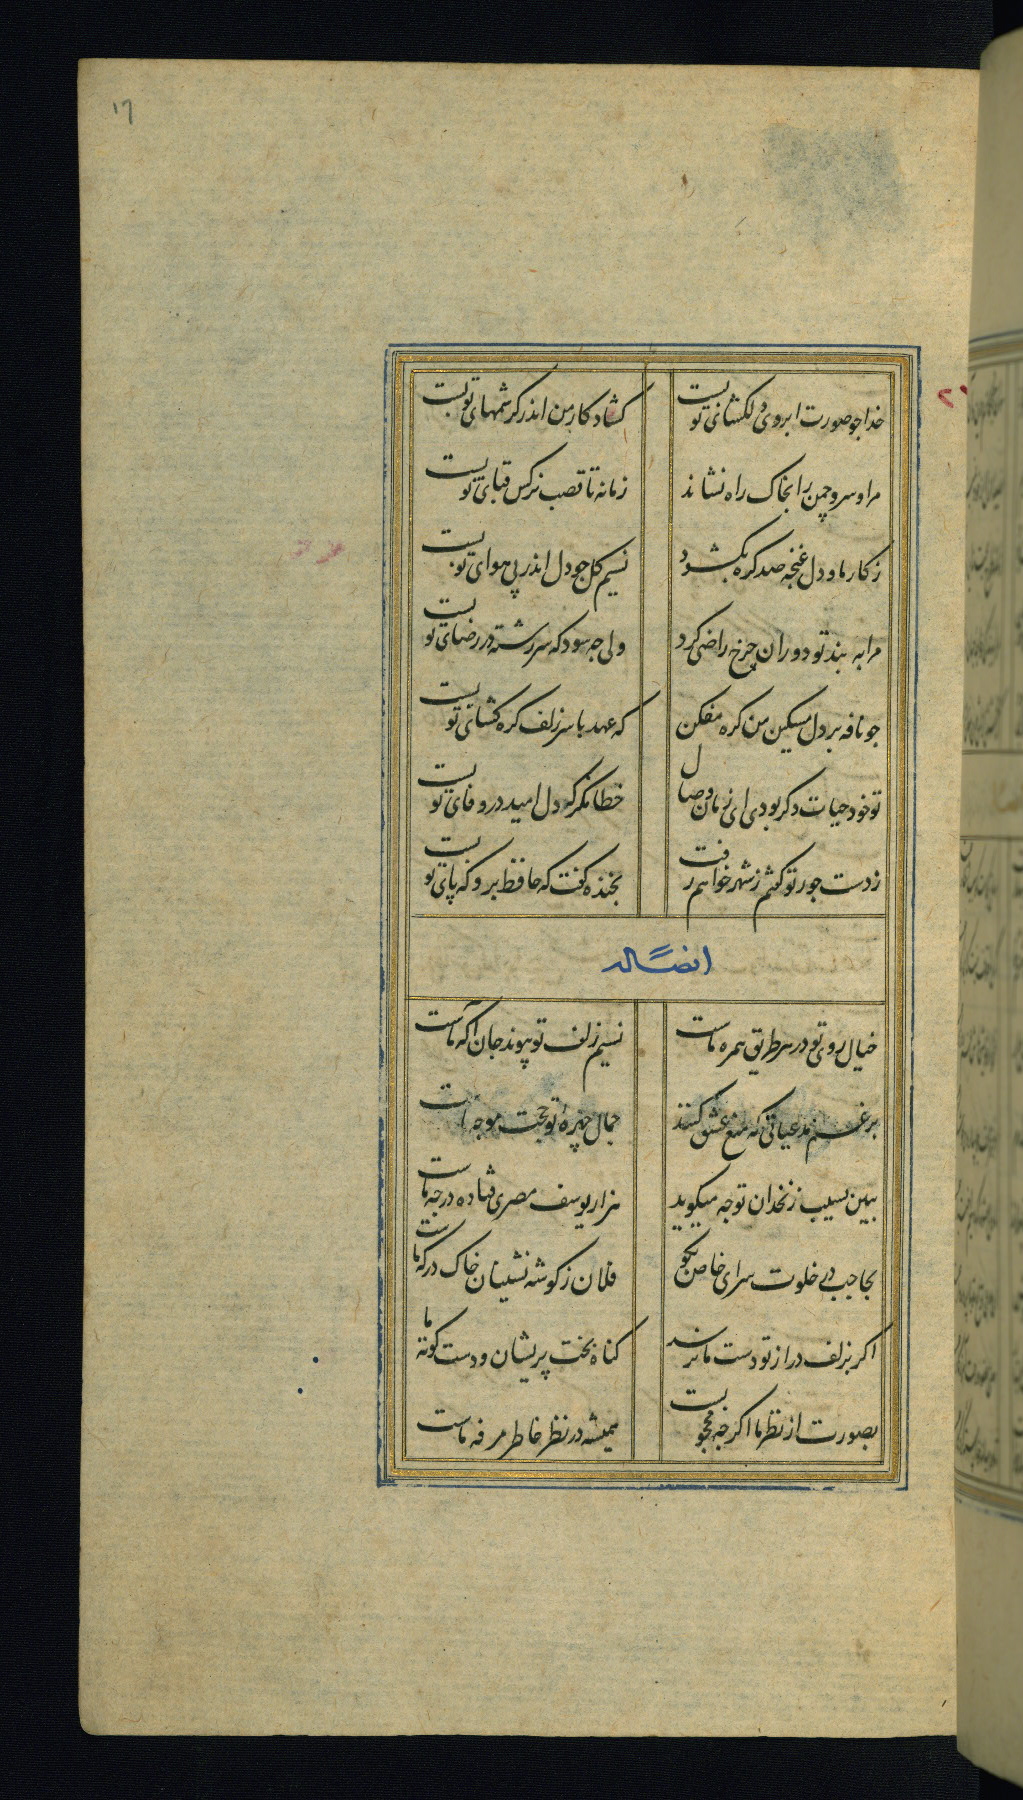 ١٦
خدا جو صورت ابروی دلکشای تو بست کشاد کار من اندر کرشمهای تو بست
مرا و سرو چمن را بخاک راه نشاند زمانه تا قصب نرکس قبای تو بست
ز کار ما و دل غنچه صد کره بکشود نسیم کل جو دل اندر پی هوای تو بست
مرا به بند تو دوران چرخ راضی کرد ولی جه سود که سر رشته در رضای تو بست
جو نافه بر دل مسکین من کره مفکن که عهد با سر زلف کره کشای تو بست
تو خود حیات دکر بودی ای زمان وصال خطا نکر که دل امید در وفای تو بست
ز دست جور تو کفتم ز شهر خواهم رفت بخنده کفت که حافظ برو که پای تو بست
ایضاً له
خیال روی تو در هر طریق همره ماست نسیم زلف تو پیوند جان آکه ماست
برغم مدعیانی که منع عشق کنند جمال چهرهٔ تو حجت موجه ماست
ببین سیب زنخدان تو جه میکوید هزار یوسف مصری فتاده در جه ماست
بحاجب در خلوت سرای خاص بکو فلان ز کوشه نشینان خاک درکه ماست
اکر بزلف دراز تو دست ما نرسد کناه بخت پریشان و دست کوته ما
بصورت از نظر ما اکر جه محجوبست همیشه در نظر خاطر مرفه ماست